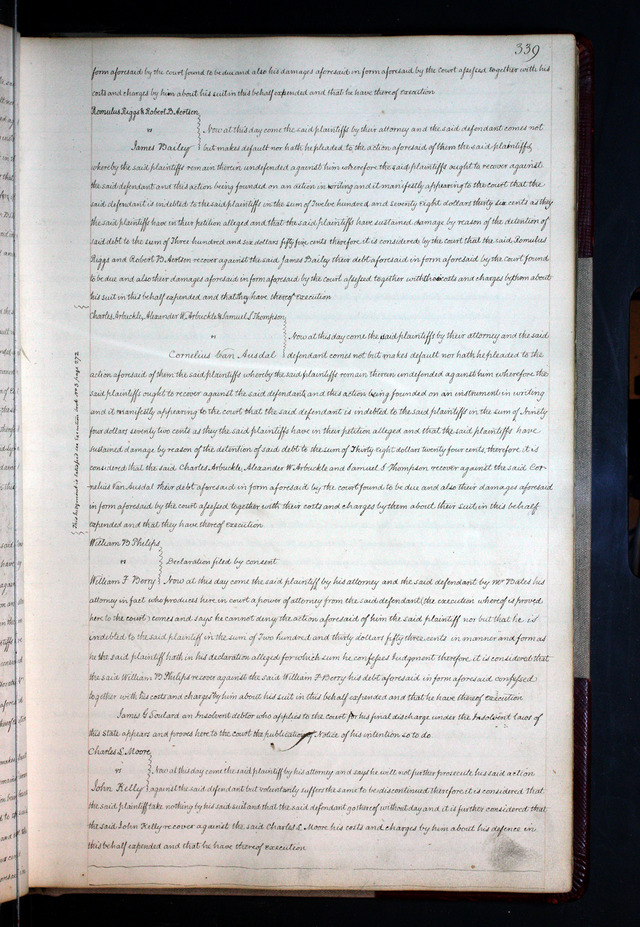 339
form aforesaid by the court found to be due and also his damages aforesaid in form aforesaid by the Court assessed together with his
costs and charges by him about his suit in this behalf expended and that he have thereof execution
Romulus Riggs & Robert B. Aertsen
vs } Now at this day come the said plaintiffs by their attorney and the said defendant comes not
James Bailey but makes default nor hath he pleaded to the action aforesaid of them the said plaintiffs,
whereby the said plaintiffs remain therein undefended against him wherefore the said plaintiffs ought to recover against
the said defendant and this action being founded on an action in writing and it manifestly appearing to the court that the
said defendant is indebted to the said plaintiffs in the sum of Twelve hundred and seventy eight dollars thirty six cents as they
the said plaintiffs have in their petition alleged and that the said plaintiffs have sustained damage by reason of the detention of
said debt to the sum of Three hundred and six dollars fifty five cents therefore it is considered by the court that the said Romulus
Riggs and Robert B. Aertsen recover against the said James Bailey their debt aforesaid in form aforesaid by the court found
to be due and also their damages aforesaid in form aforesaid by the court assessed together with their costs and charges by them about
his suit in this behalf expended and that they have thereof execution
Charles Arbuckle, Alexander W. Arbuckle & Samuel S Thompson
vs } Now at this day come the said plaintiffs by their attorney and the said
Cornelius Van Ausdal defendant comes not but makes default nor hath he pleaded to the
action aforesaid of them the said plaintiffs whereby the said plaintiffs remain therein undefended against him wherefore the
said plaintiffs ought to recover against the said defendants and this action being founded on an instrument in writing
and it manifestly appearing to the court that the said defendant is indebted to the said plaintiffs in the sum of Ninety
four dollars seventy two cents as they the said plaintiffs have in their petition alleged and that the said plaintiffs have
sustained damage by reason of the detention of said debt to the sum of Thirty eight dollars twenty four cents, therefore it is
considered that the said Charles Arbuckle, Alexander W. Arbuckle and Samuel S Thompson recover against the said Cor-
nelius Van Ausdal their debt aforesaid in form aforesaid by the court found to be due and also their damages aforesaid
in form aforesaid by the court assessed together with their costs and charges by them about their suit in this behalf
expended and that they have thereof execution
This judgment is satisfied see Execution book page 272
William B Philips
vs } Declaration filed by consent
William F Berry } Now at this day come the said plaintiff by his attorney and the said defendant by Mr Bates his
attorney in fact who produces here in court a power of attorney from the said defendant (the execution whereof is proved
here to the court) comes and says he cannot deny the action aforesaid of him the said plaintiff nor but that he is
indebted to the said plaintiff in the sum of Two hundred and thirty dollars fifty three cents in manner and form as
he the said plaintiff hath in his declaration alleged for which sum he confesses Judgment therefore it is considered that
the said William B Philips recover against the said William F Berry his debt aforesaid in form aforesaid confessed
together with his costs and charges by him about his suit in this behalf expended and that he have thereof execution
James G Soulard an Insolvent debtor who applies to the court for his final discharge under the Insolvent laws of
this State appears and proves here to the court the publication of Notice of his intention so to do
Charles L Moore
vs } Now at this day come the said plaintiff by his attorney and says he will not further prosecute his said action
John Kelly against the said defendant but voluntarily suffers the same to be discontinued therefore it is considered that
the said plaintiff take nothing by his said suit and that the said defendant go thereof without day and it is further considered that
the said John Kelly recover against the said Charles L Moore his costs and charges by him about his defence in
this behalf expended and that he have thereof execution